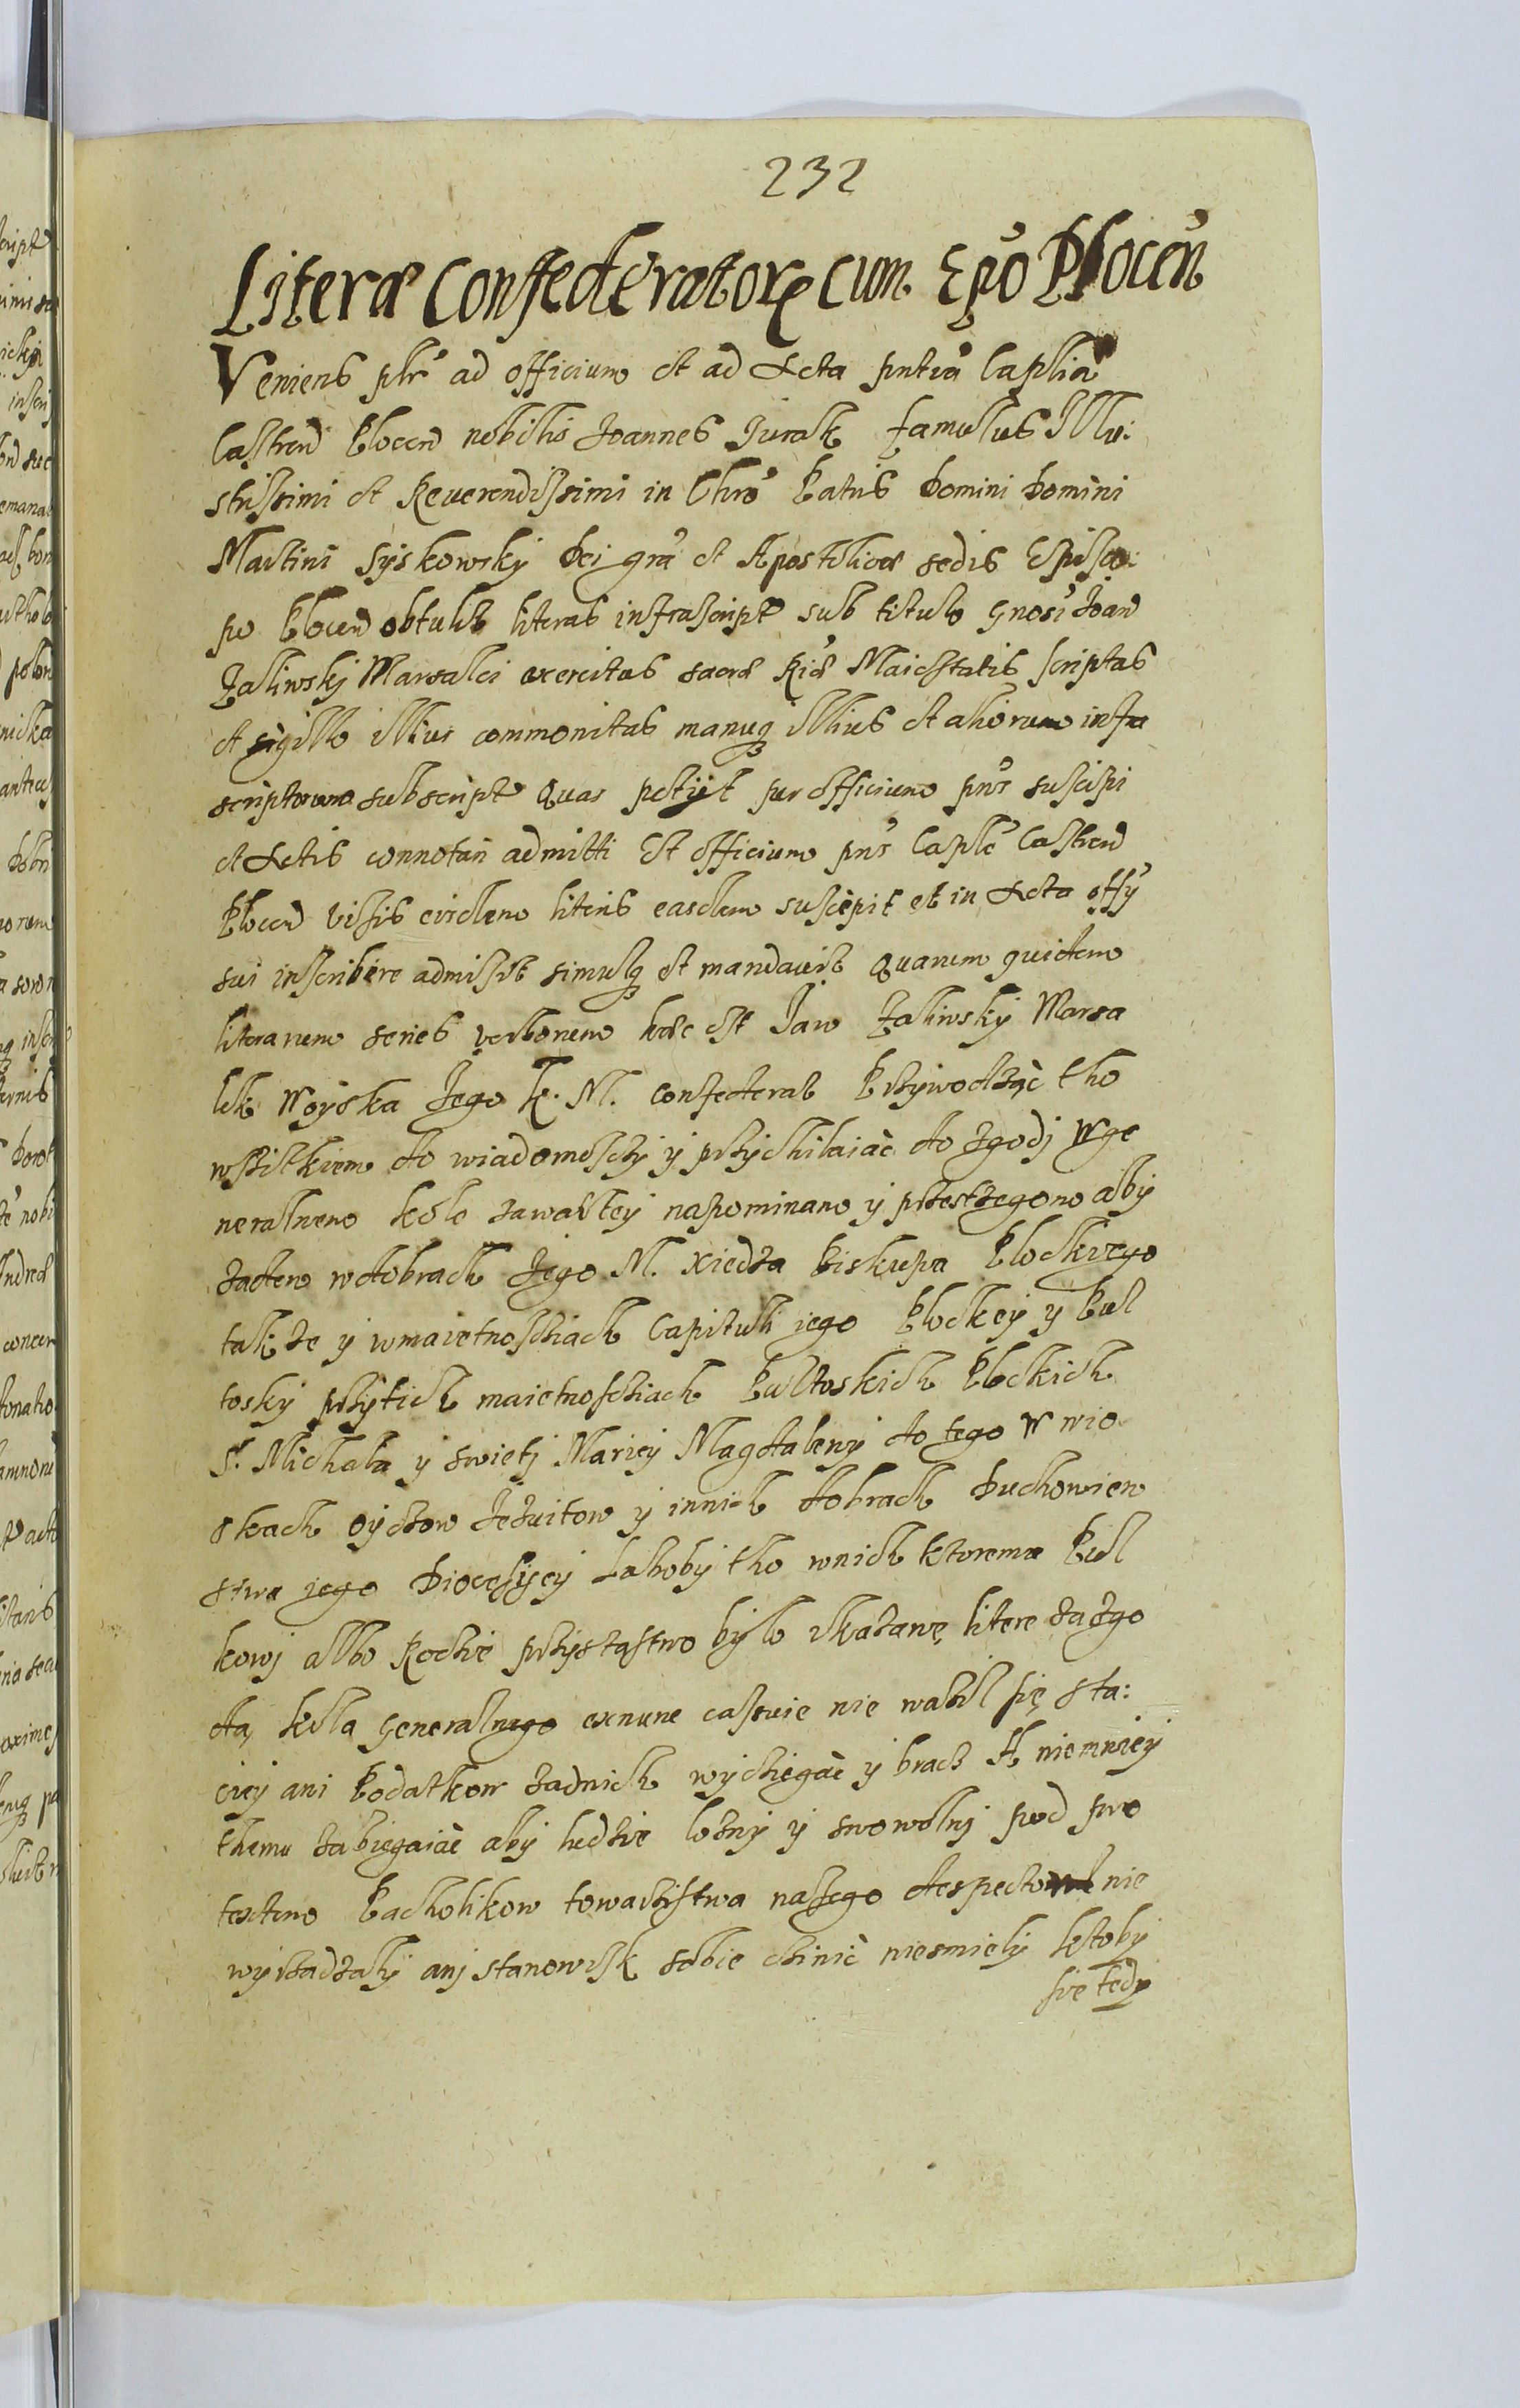 232
Literæ Confederatorꝝ cum Epo Plocen
Veniens plr ad officium et ad Acta pntia Caplia
Castren Plocen nobilis Joannes Jurak famulus Illu:
strissimi et Reverendissimi in Chro Patris Domini Domini
Martini Syskowsky Dei gra et Apostolicæ sedis Episco:
po Plocen obtulit literas infrascript sub titulo Gnosi Joan
Zaliwsky Marsalci exercitus sacræ Riæ Maiestatis scriptas
et sigillo illius commonitas manuq illius et aliorum infra
scriptorum subscript Quas petijt per officium pns suscipi
et Actis connotari admitti Et officium pns Caple Castren
Plocen visis eisdem literis easdem suscepit et in Acta offy
sui inscribere admisit simulq et mandavit Quarum quidem
literarum series verborum hæc est Jan Zaliwsky Marsa
lek Woyska Jego K. M. confederat Przywodząc tho
wszitkiem do wiadomosczy y przychilaiąc do zgodj w ge
neralnem kole zawartey napominamo y przestzegono abÿ
zaden w dobrach Jego M. Xiedza Biskupa Plockiego
takze y w maietnosciach Capituli jego Plockey y Pul
tosky przytich maietnosciach Pultoskich Plockich
S. Michala y swietj Mariey Magdaleny do tego w wio
skach oyczow Jezuitow y innich dobrach Duchowien
stwa jego Diocesijey Lakoby tho w nich ktoremu Pul
kowj albo Rocie przystastwo było vkazane, litere zazgo
dą kola Generalnego exnunc castwie nie wazil się sta:
ciey ani Podatkow zadnich wyciegac y bracz A niemniey
themu zabiegaiac aby ludzie lozny y swowolnj pod pre
textem Pacholikow towarzistwa naszego despectow nie
wyrzadzaly anj stanowisk sobie czinic niesmiely ktoby
sie tedy